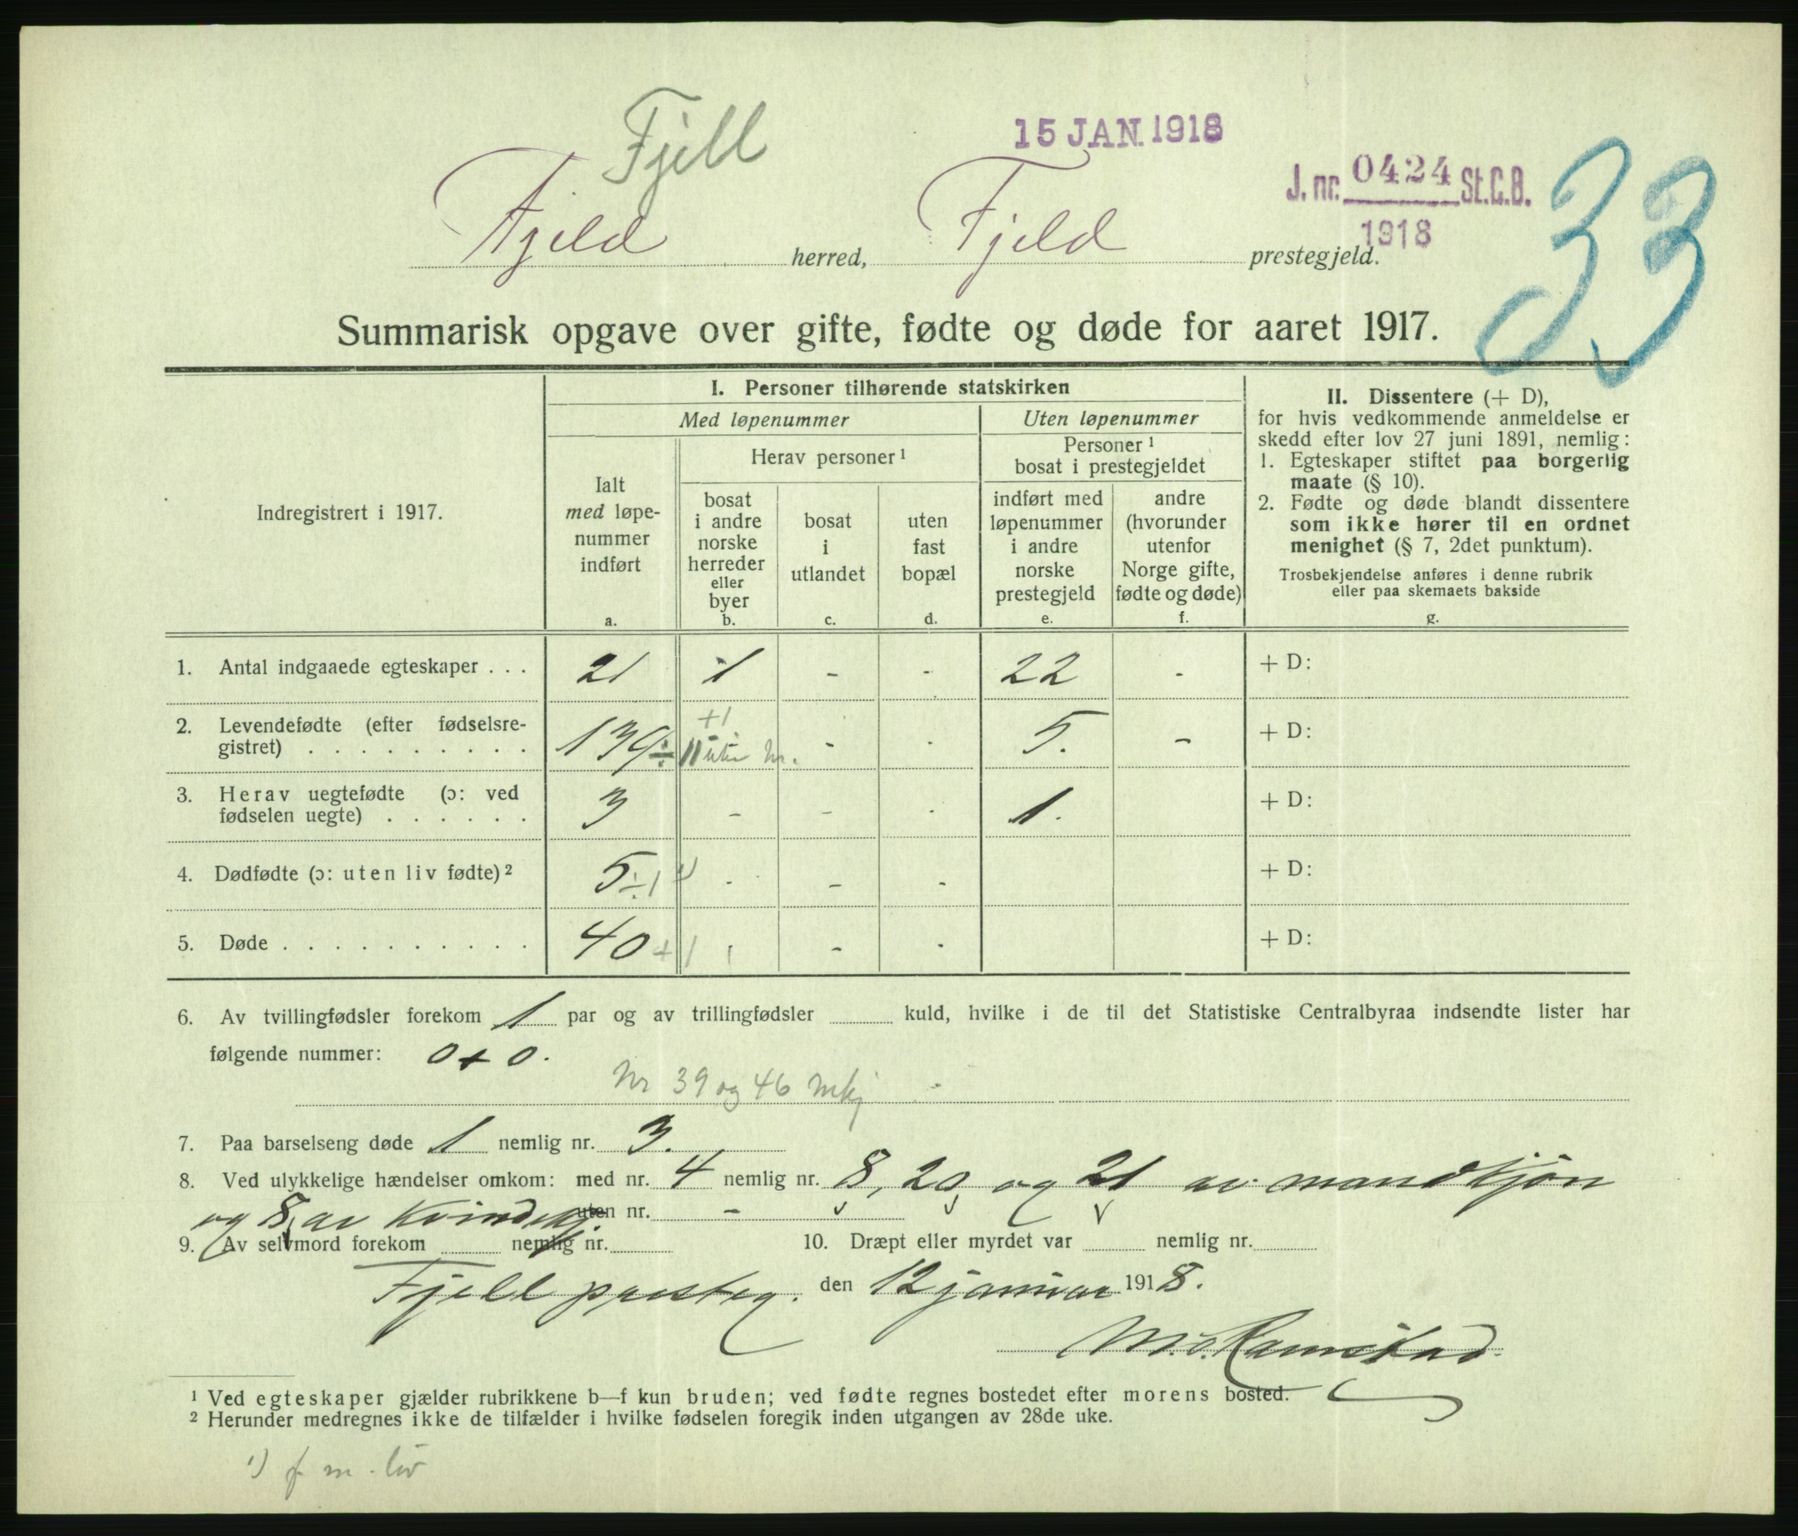 Fjell
15 JAN. 1918
J. nr. 0424 St.C.B.
1918
33
Fjeld herred, Fjeld prestegjeld.
Summarisk opgave over gifte, fødte og døde for aaret 1917.
Indregistrert i 1917.
I. Personer tilhørende statskirken
Med løpenummer
Uten løpenummer
Ialt
med løpe-
nummer
indført
a.
Herav personer ¹
bosat
i andre
norske
herreder
eller
byer
b.
bosat
i
utlandet
c.
uten
fast
bopæl
d.
Personer ¹
bosat i prestegjeldet
indført med
løpenummer
i andre
norske
prestegjeld
e.
andre
(hvorunder
utenfor
Norge gifte,
fødte og døde)
f.
II. Dissentere (+ D),
for hvis vedkommende anmeldelse er
skedd efter lov 27 juni 1891, nemlig:
1. Egteskaper stiftet paa borgerlig
maate (§ 10).
2. Fødte og døde blandt dissentere
som ikke hører til en ordnet
menighet (§ 7, 2det punktum).
Trosbekjendelse anføres i denne rubrik
eller paa skemaets bakside
g.
1. Antal indgaaede egteskaper . . . 21 1 - - 22 - + D:
2. Levendefødte (efter fødselsre-
gistret) . . . . . . . . . 139 ÷ 11 uten Nr. +1 - - 5. - + D:
3. Herav uegtefødte (ɔ: ved
fødselen uegte) . . . . . . 3 - - - 1. + D:
4. Dødfødte (ɔ: uten liv fødte) ² 5 ÷1 ¹⁾ - - - + D:
5. Døde . . . . . . . . . . 40 +1 - - + D:
6. Av tvillingfødsler forekom 1 par og av trillingfødsler kuld, hvilke i de til det Statistiske Centralbyraa indsendte lister har
følgende nummer: 0+0.
Nr 39 og 46 mkj
7. Paa barselseng døde 1 nemlig nr. 3.
8. Ved ulykkelige hændelser omkom: med nr. 4 nemlig nr. 8, 20, og 21 av mandkjøn
og 8, av kvindekj. uten nr. -
9. Av selvmord forekom nemlig nr. 10. Dræpt eller myrdet var nemlig nr.
Fjell presteg. den 12 januar 1918.
M. O. Ramstad.
¹ Ved egteskaper gjælder rubrikkene b—f kun bruden; ved fødte regnes bostedet efter morens bosted.
² Herunder medregnes ikke de tilfælder i hvilke fødselen foregik inden utgangen av 28de uke.
¹) f. m. liv